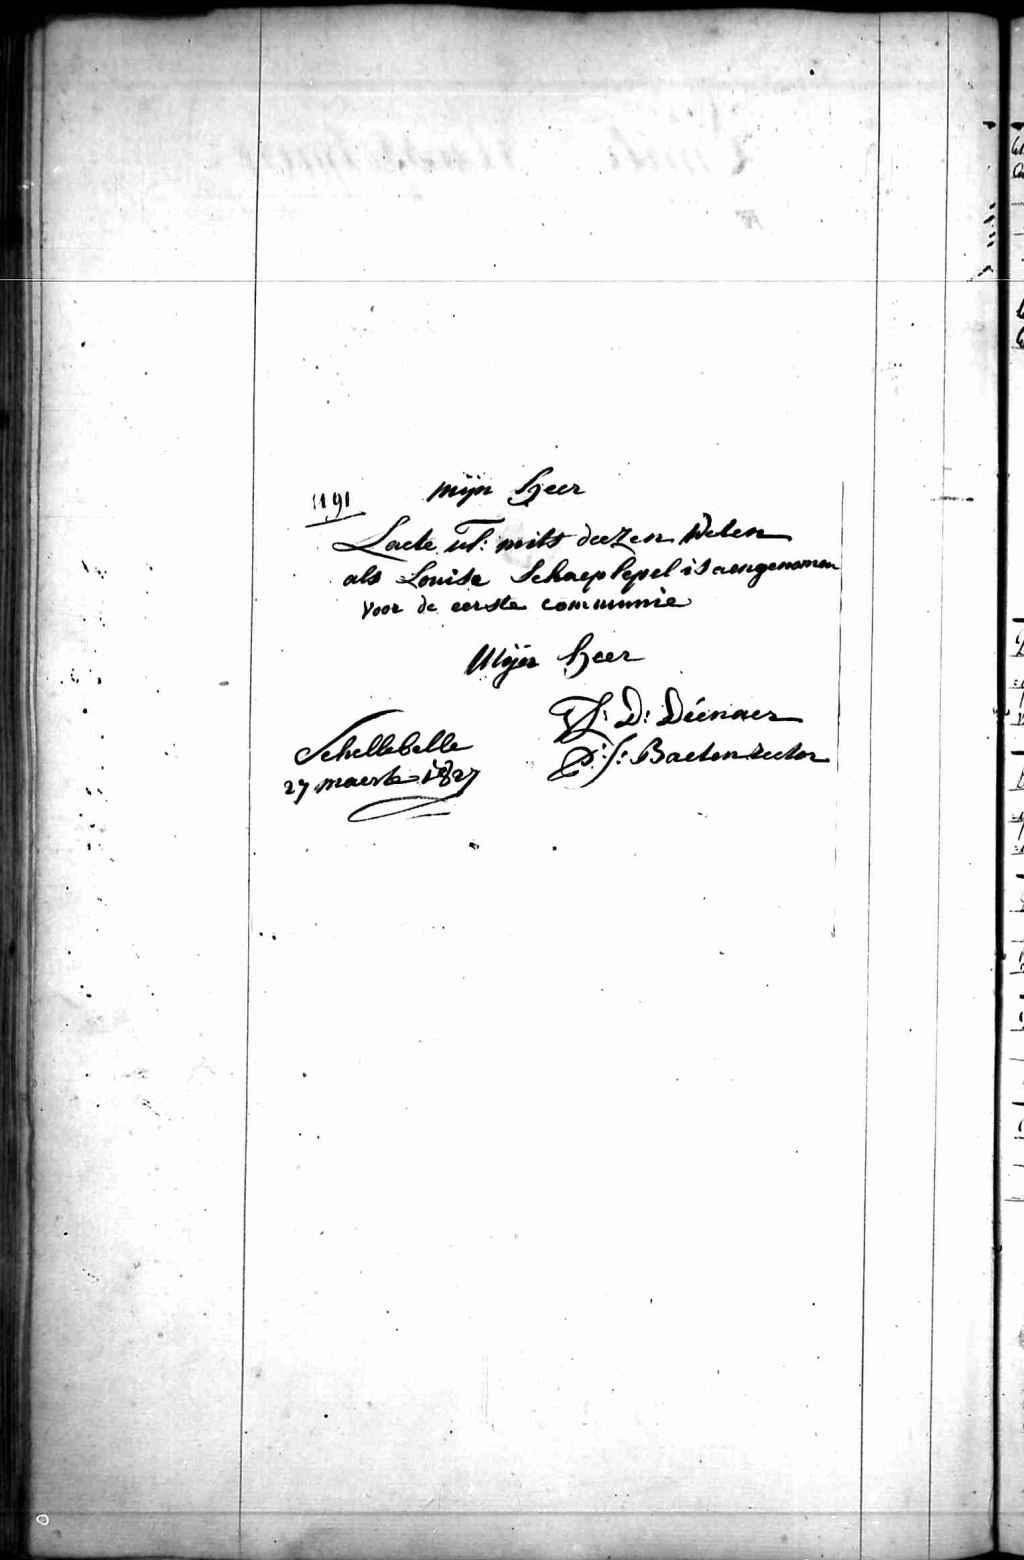 1191
Mijn Heer
Laete Ul: mits deezen Weten
als Louise Schaeplepel is aengenomen
voor de eerste communie
Mijn Heer
Ul: D: Dienaer
P: J: Baeten rector
Schellebelle
27 maerte 1827